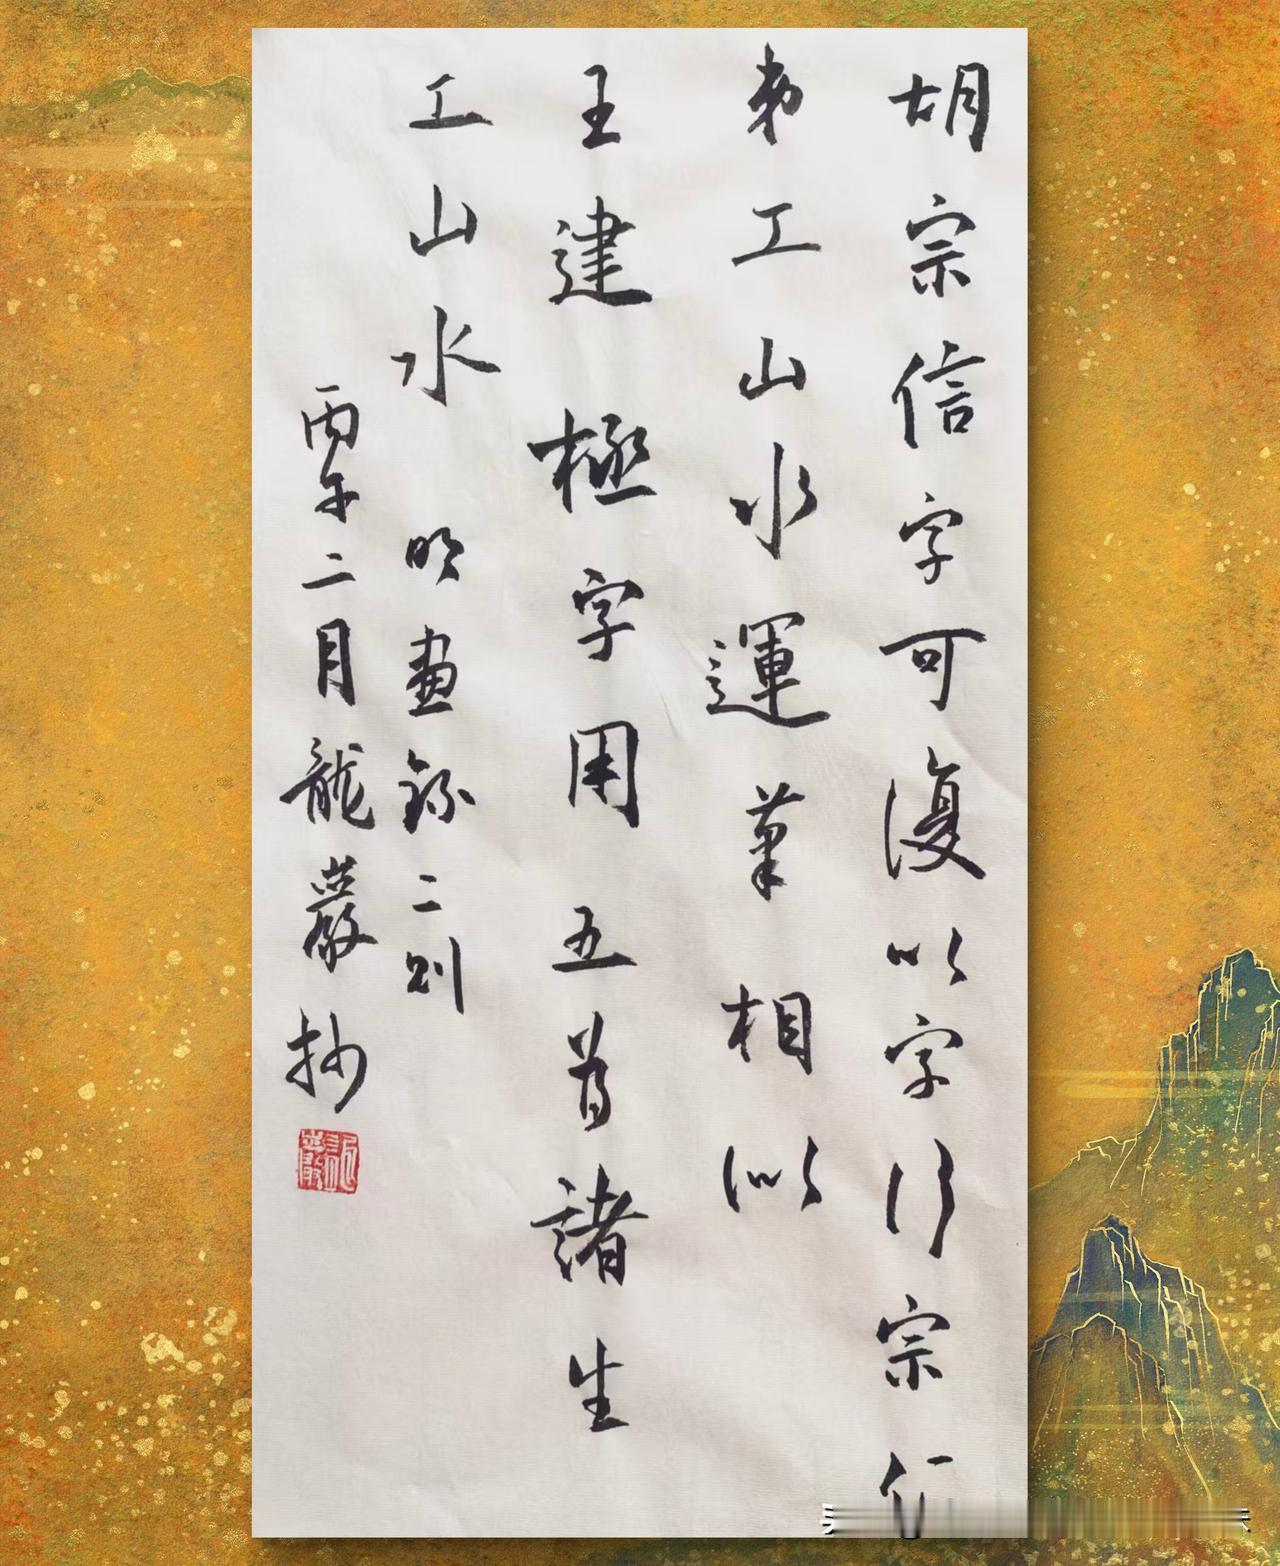 胡宗信字可復以字行宗仁
弟工山水運筆相似
王建極字用五首諸生
工山水 明畫錄二則
丙午二月龍嚴抄